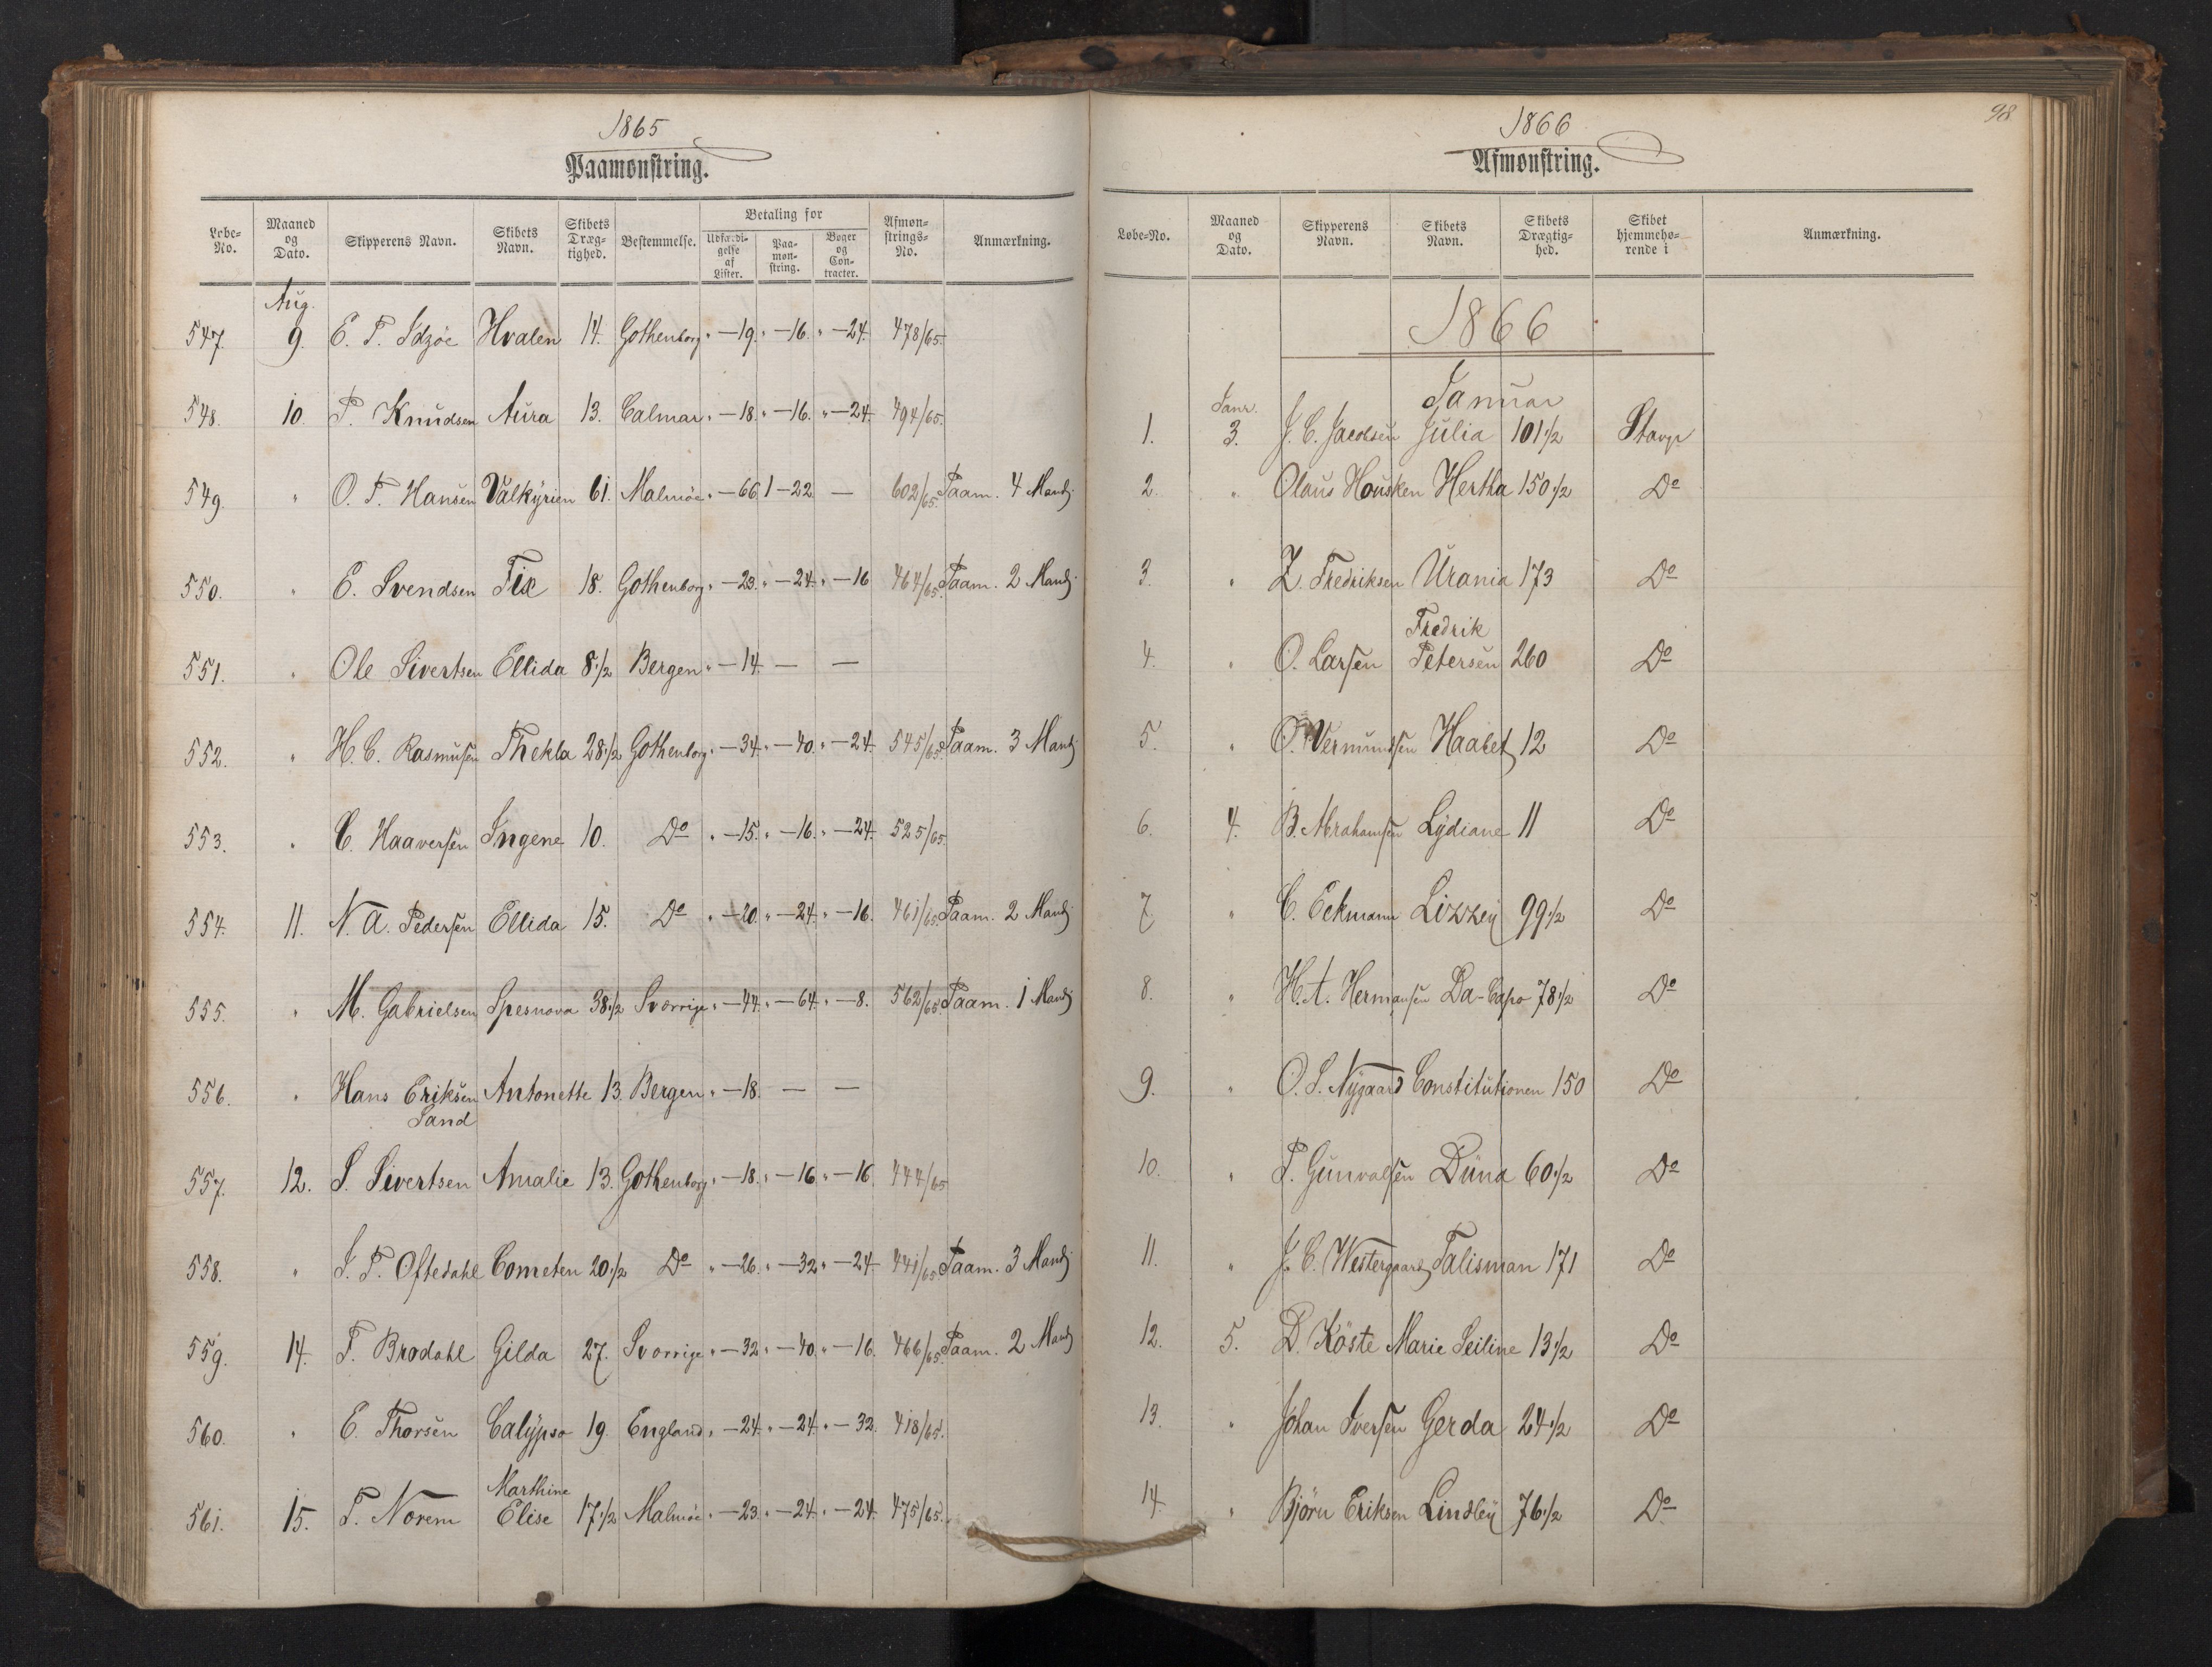 1865
Paamønstring.
Løbe-No. Maaned og Dato. Skipperens Navn. Skibets Navn. Skibets Dræg-tighed. Bestemmelse. Betaling for Udfærdi-gelse af Lister. Paa-møn-string. Bøger og Con-tracter. Afmøn-strings-No. Anmærkning.
Aug.
547. 9. E. T. Idzøe Hvalen 14. Gothenborg " — 19. " — 16. " — 24. 478/65.
548. 10. P. Knudsen Aura 13. Calmar " — 18. " — 16. " — 24. 494/65.
549. " O. T. Hansen Valkyrien 61. Malmøe " — 66 1 — 22 — 602/65. Paam. 4 Mand
550. " E. Svendsen Fix 18. Gothenborg " — 23. " — 24. " — 16 464/65. Paam. 2 Mand
551. " Ole Sivertsen Ellida 8 1/2 Bergen " — 14. — —
552. " H. C. Rasmusen Thekla 28 1/2 Gothenborg " — 34. " — 40. " — 24. 545/65. Paam. 3 Mand
553. " C. Haaversen Ingene 10. Do " — 15. " — 16. " — 24. 525/65.
554. 11. N. A. Pedersen Ellida 15. Do " — 20. " — 24. " — 16. 461/65. Paam. 2 Mand
555. " M. Gabrielsen Spesnova 38 1/2 Sverrige " — 44. " — 64. " — 8. 562/65. Paam. 1 Mand
556. " Hans Eriksen Antonette 13. Bergen " — 18. — —
Sand
557. 12. S. Sivertsen Amalie 13. Gothenborg " — 18. " — 16 " — 16 444/65
558. " J. P. Oftedahl Cometen 20 1/2 Do " — 26. " — 32 " — 24 441/65 Paam. 3 Mand
559. 14. T. Brodahl Gilda 27. Sverrige " — 32 " — 40. " — 16. 466/65. Paam. 2 Mand
560. " E. Thorsen Calypso 19. England " — 24. " — 24. " — 32. 418/65.
Marthine
561. 15. T. Norem Elise 17 1/2 Malmøe " — 23. " — 24. " — 24. 475/65.
98
1866
Afmønstring.
Løbe-No. Maaned og Dato. Skipperens Navn. Skibets Navn. Skibets Drægtig-hed. Skibet hjemmehø-rende i Anmærkning.
1866
Januar
Janr.
1. 3. J. C. Jacobsen Julia 101 1/2 Stavgr
2. " Olaus Housken Hertha 150 1/2 Do
3. " Z. Fredriksen Urania 173 Do
Fredrik
4. " O. Larsen Petersen 260 Do
5. " O. Vermundsen Haabet 12 Do
6. 4. B. Abrahamsen Lydiane 11 Do
7 " C. Eckmann Lizzey 99 1/2 Do
8. " H. A. Hermansen Da-Capo 78 1/2 Do
9. " O. S. Nygaard Constitutionen 150 Do
10. " P. Gunvalsen Düna 60 1/2 Do
11. " J. C. Westergaard Talisman 171 Do
12. 5. D. Köste Marie Seiline 13 1/2 Do
13. " Johan Iversen Gerda 24 1/2 Do
14. " Bjørn Eriksen Lindley 76 1/2 Do